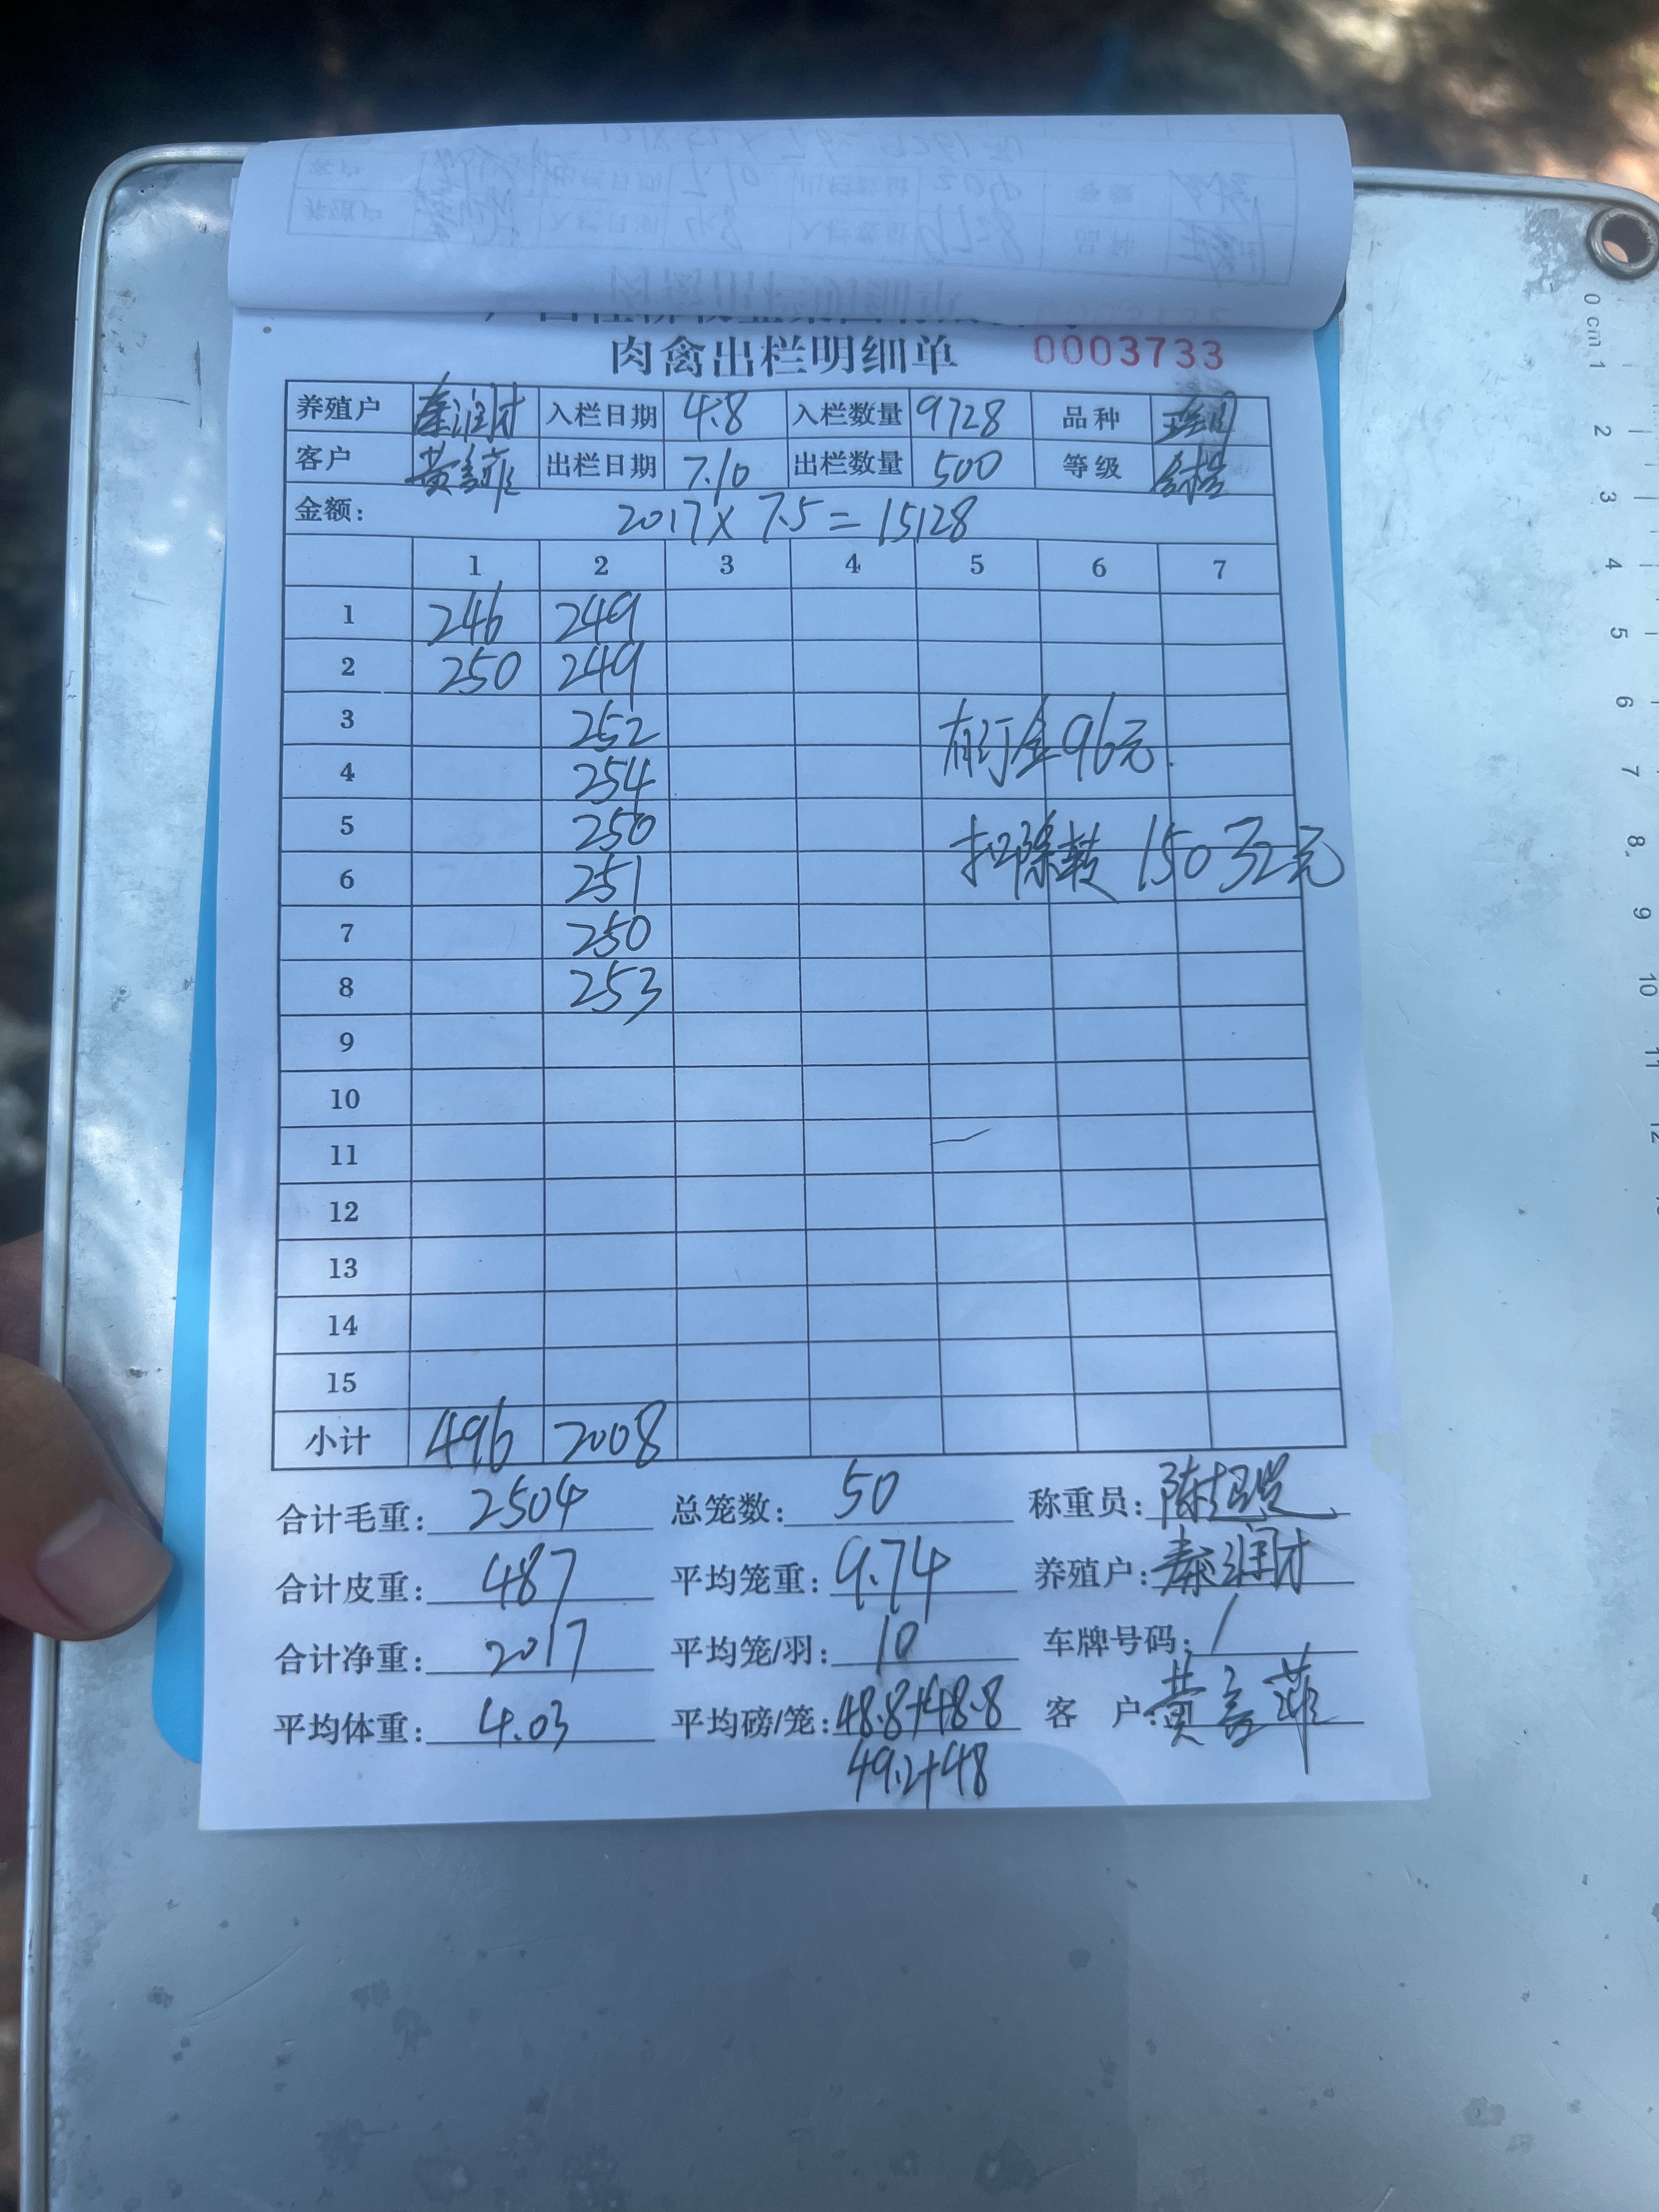 肉禽出栏明细单 0003733
养殖户 秦润才 入栏日期 4.8 入栏数量 9728 品种
客户 黄 菲 出栏日期 7.10 出栏数量 500 等级
金额: 2017×7.5=15128
1 2 3 4 5 6 7
1 246 249
2 250 249
3 252
有订金96元
4 254
5 250
扣除转15032元
6 251
7 250
8 253
9
10
11
12
13
14
15
小计 496 2008
合计毛重: 2504 总笼数: 50 称重员: 陈
合计皮重: 487 平均笼重: 9.74 养殖户: 秦润才
合计净重: 2017 平均笼/羽: 10 车牌号码: /
平均体重: 4.03 平均磅/笼: 48.8+48.8 客 户: 黄 菲
49.2+48
0 cm 1
2
3
4
5
6
7
8
9
10
11
12